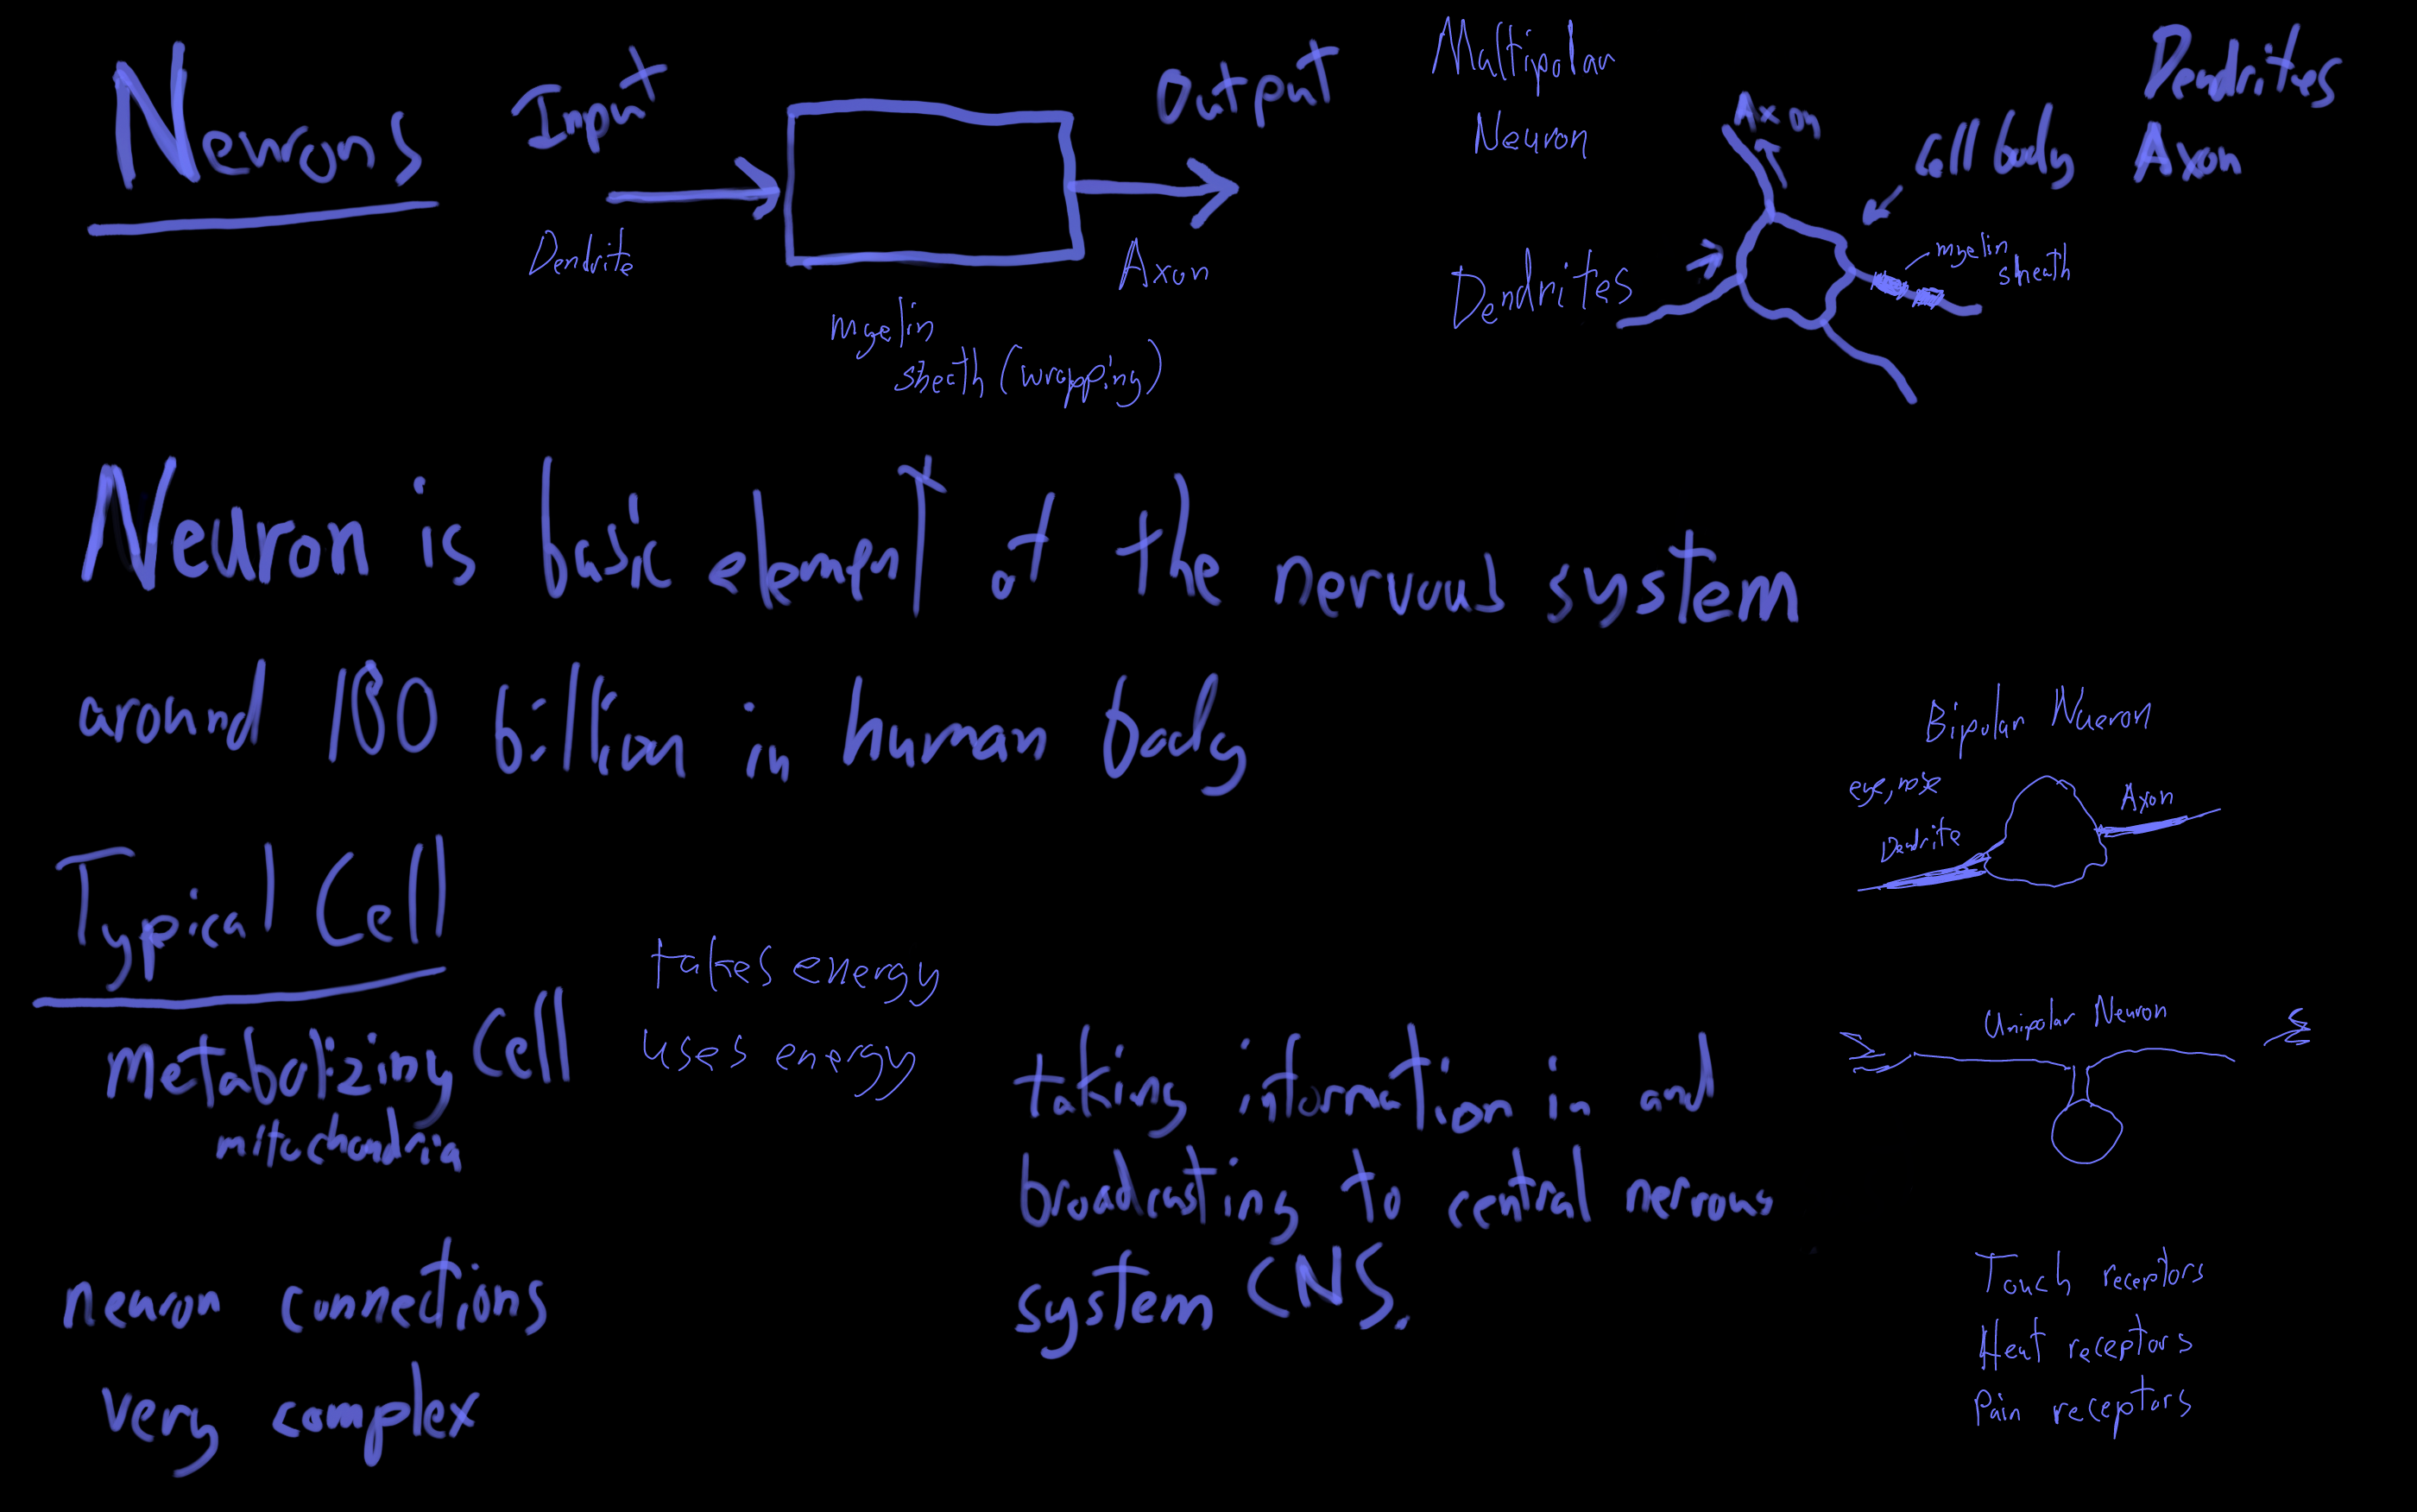 Neurons
Input
Dendrite
Output
Axon
myelin
sheath (wrapping)
Multipolar
Neuron
Axon
Cell body
Dendrites
Axon
myelin
sheath
Dendrites
Neuron is basic element of the nervous system
around billion in human body
Bipolar Nueron
eye, nose
Axon
Dendrite
Typical Cell
Metabolizing Cell
mitochondria
takes energy
uses energy
neuron connections
very complex
taking information in and
broadcasting to central nervous
system CNS.
Unipolar Neuron
Touch receptors
Heat receptors
Pain receptors